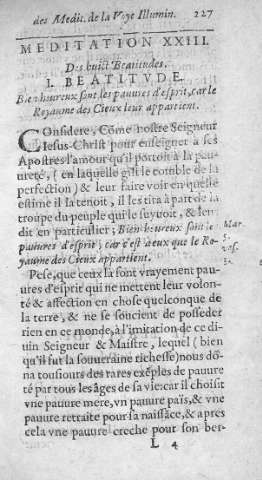 des Medit. de la Voye Illumin. 227
MEDITATION XXIII.
Des huict Beatitudes.
I. BEATITVDE.
Bien heureux sont les pauures d'esprit, car le
Royaume des Cieux leur appartient.
COnsidere, Cõme nostre Seigneur
Iesus-Christ pour enseigner à ses
Apostres l'amour qu'il portoit à la pau-
ureté, (en laquelle gist le comble de la
perfection) & leur faire voir en quelle
estime il la tenoit, il les tira à part de la
troupe du peuple qui le suyuoit, & leur
dit en particulier; Bien heureux sont les Mat.
pauures d'esprit; car c'est à eux que le Ro- 5.
yaume des Cieux appartient.
Pese, que ceux là sont vrayement pau-
ures d'esprit qui ne mettent leur volon-
té & affection en chose quelconque de
la terre, & ne se soucient de posseder
rien en ce monde, à l'imitation de ce di-
uin Seigneur & Maistre, lequel (bien
qu'il fut la souueraine richesse) nous dõ-
na tousiours des rares exẽples de pauure
té par tous les âges de sa vie: car il choisit
vne pauure mere, vn pauure païs, & vne
pauure retraite pour sa naissãce, & apres
cela vne pauure creche pour son ber-
L 4